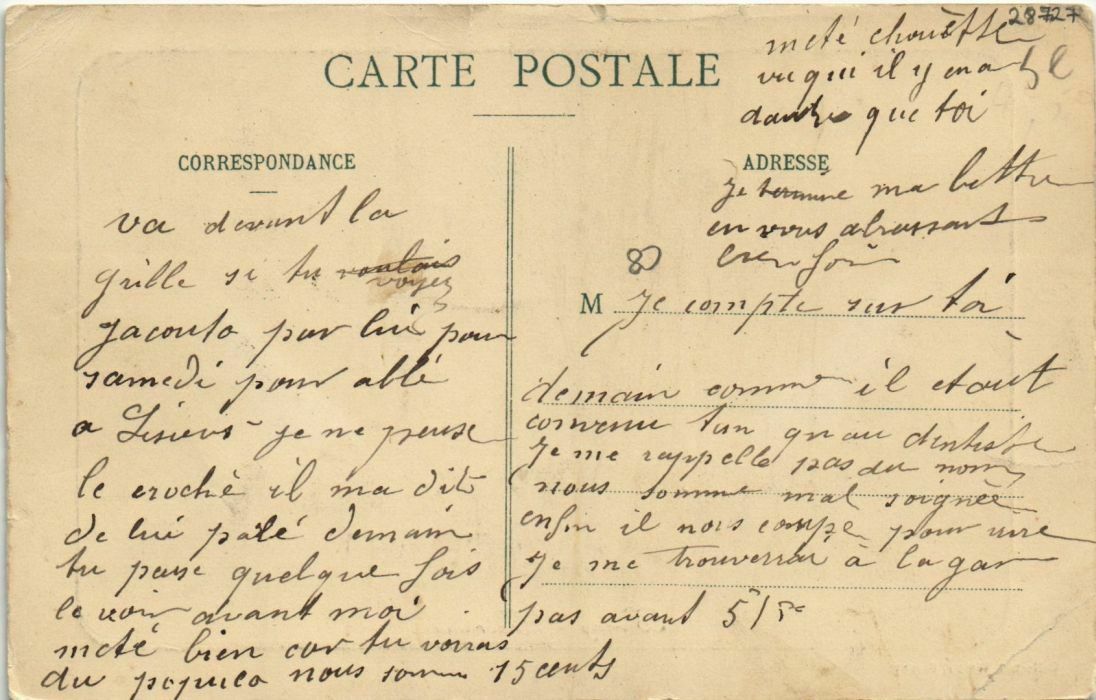 28727
CARTE POSTALE
CORRESPONDANCE
va devant la
grille si tu voulais
voyez
Jacouto par lui pour
samedi pour allé
a Lisieux je ne peuse
le croché il ma dit
de lui palé demain
tu passe quelque fois
le voir avant moi
meté bien car tu vorras
du nous somme 15 cents
meté chouette
vu qui il y en a
dautre que toi
ADRESSE
Je termine ma lettre
en vous abrassant
bien fort
8
M Je compte sur toi
demain comme il etait
convenu tan qu au dentiste
Je me rappelle pas du nom
nous somme mal soignée
enfin il nous coupe pour rire
Je me trouverrai à la gar
pas avant 5